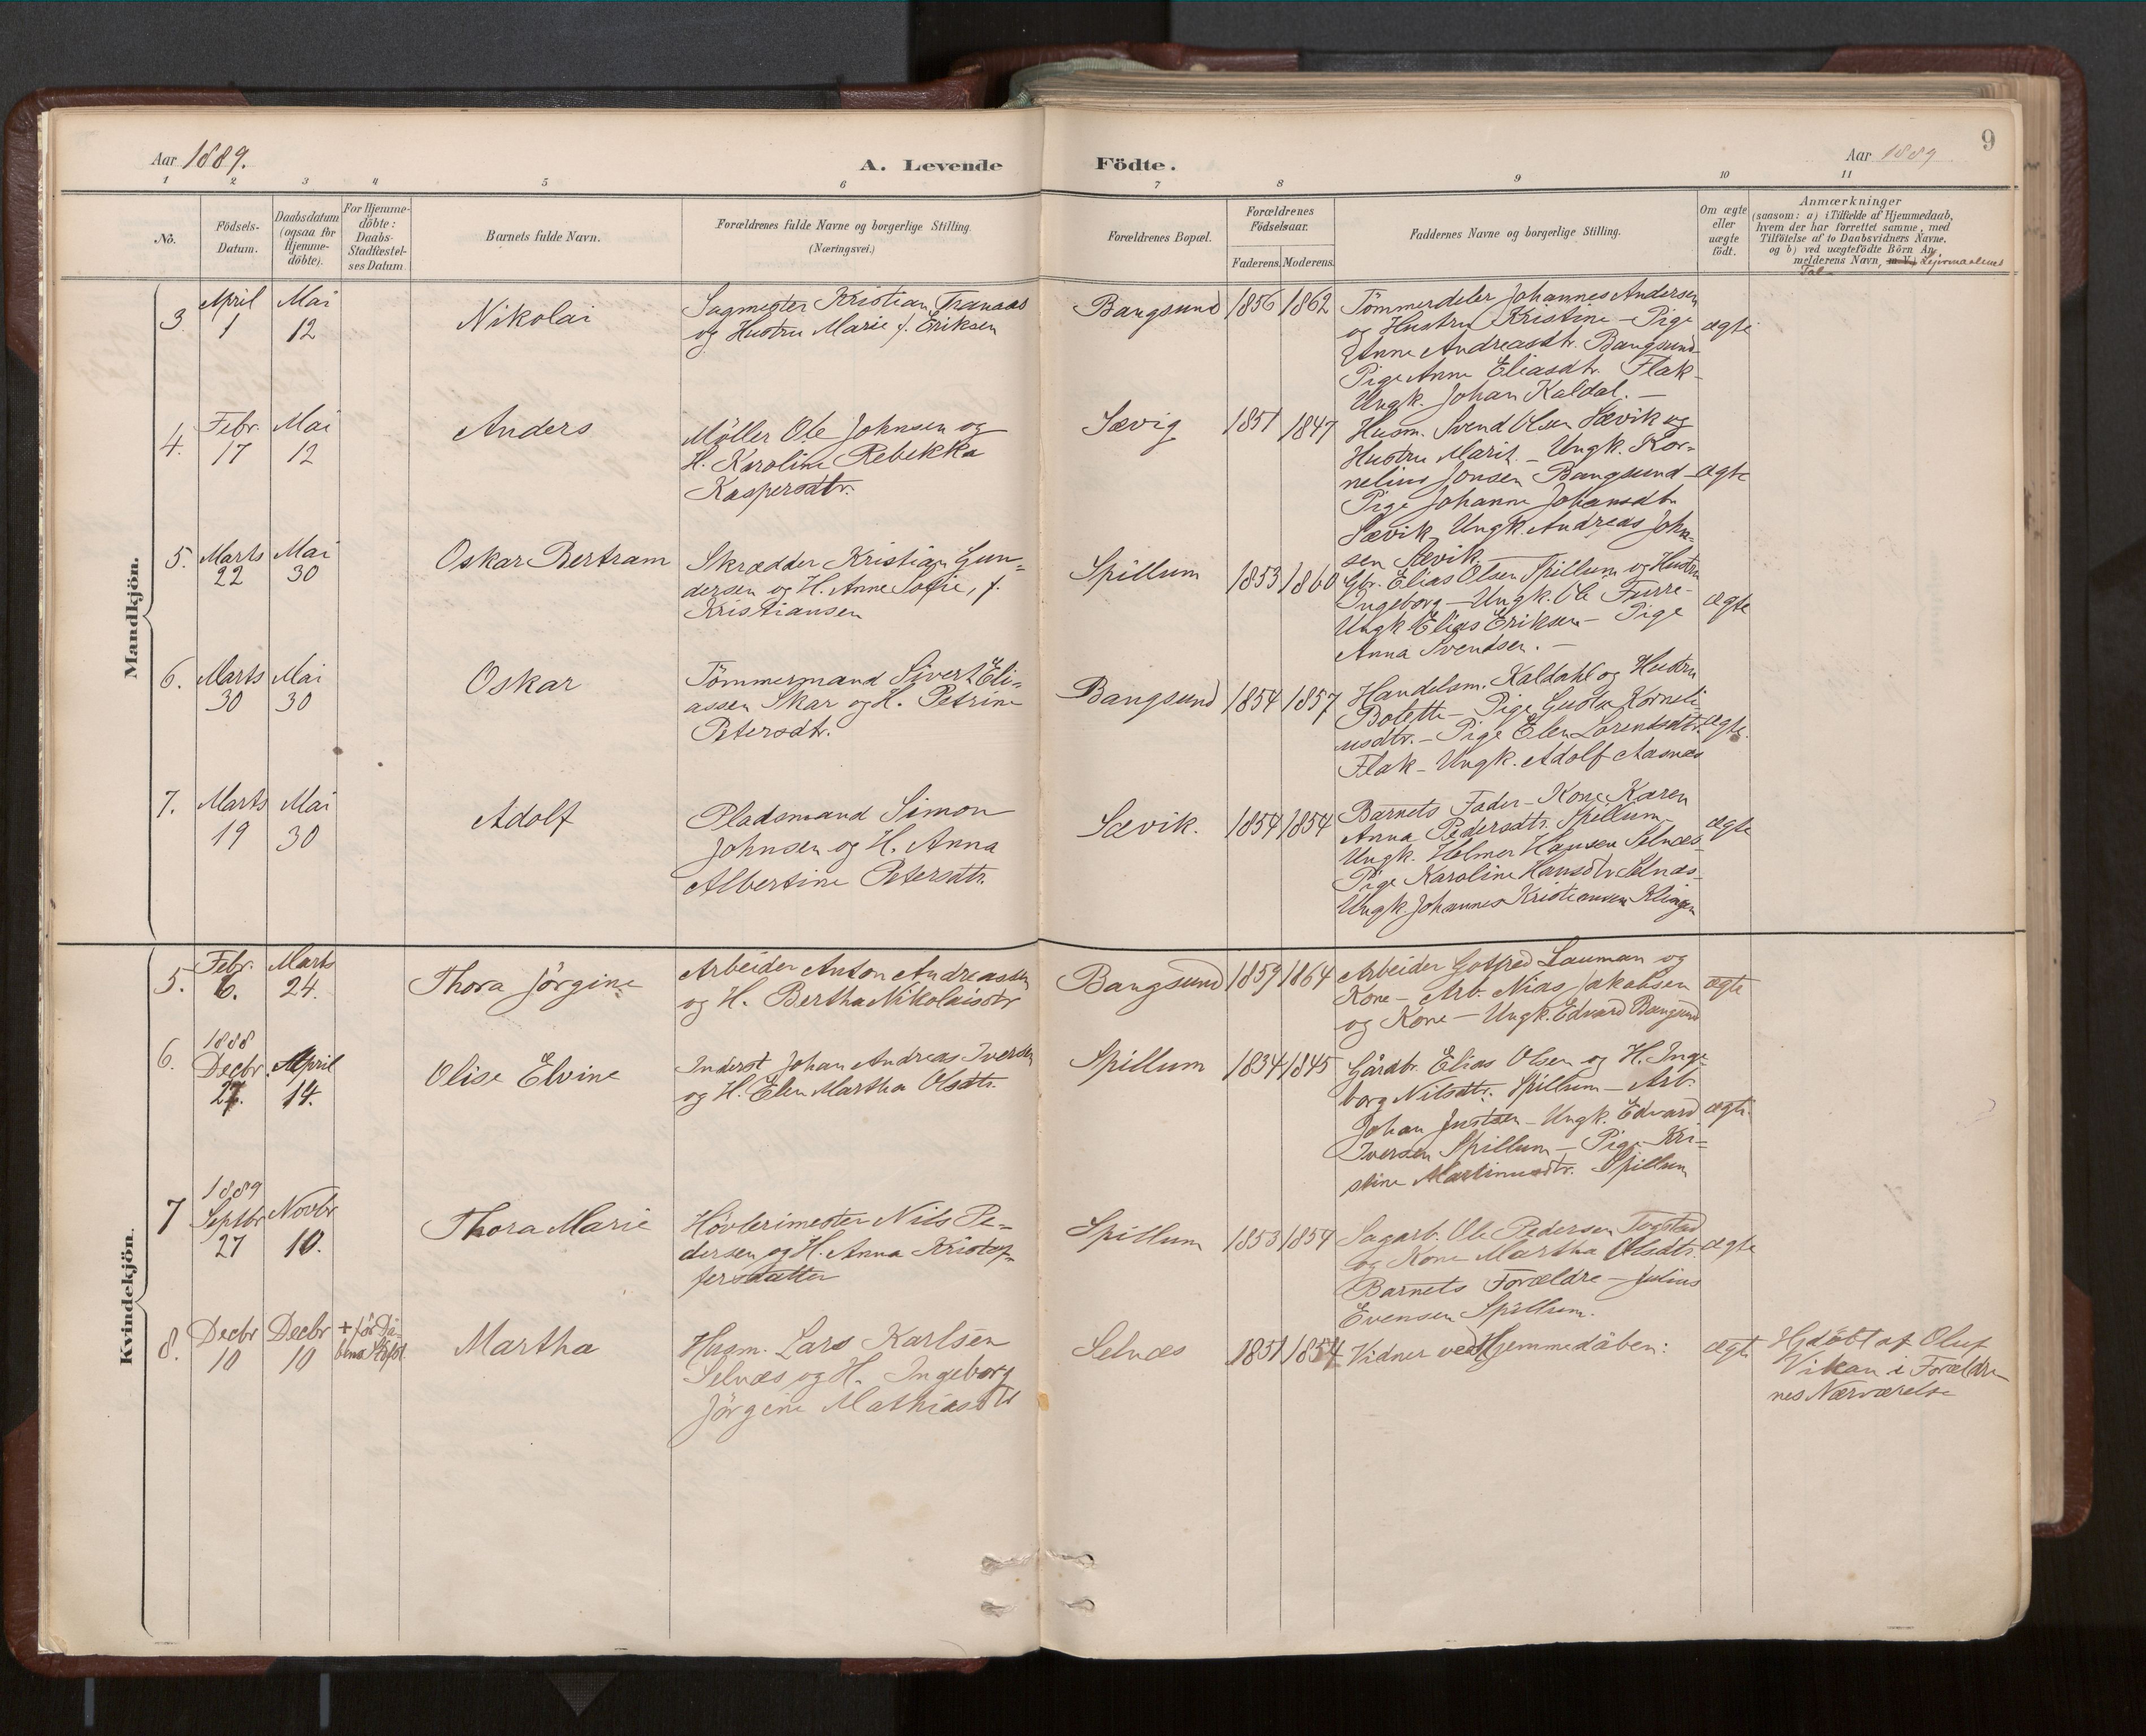 9
Aar 1889.
A. Levende Födte.
Aar 1889
1 2 3 4 5 6 7 8 9 10 11
No.
Födsels-
Datum.
Daabsdatum
(ogsaa for
Hjemme-
döbte).
For Hjemme-
döbte:
Daabs-
Stadfæstel-
ses Datum.
Barnets fulde Navn.
Forældrenes fulde Navne og borgerlige Stilling.
(Næringsvei.)
Forældrenes Bopæl.
Forældrenes
Födselsaar.
Faderens. Moderens.
Faddernes Navne og borgerlige Stilling.
Om ægte
eller
uægte
födt.
Anmærkninger
(saasom: a) i Tilfælde af Hjemmedaab,
hvem der har forrettet samme, med
Tilföielse af to Daabsvidners Navne,
og b) ved uægtefödte Börn An-
melderens Navn, m. V.) Leiermaalenes
Tal
Mandkjön.
3
April
1
Mai
12
Nikolai
Sagmester Kristian Tranaas
og Hustru Marie f. Eriksen
Bangsund
1856
1862
Tömmerdeler Johannes Andersen
og Hustru Kristine - Pige
Anne Andreasdtr. Bangsund-
Pige Anne Eliasdtr. Flak-
Ungk. Johan Kaldal. -
ægte
4.
Febr.
17
Mai
12
Anders
Möller Ole Johnsen og
H. Karoline Rebekka
Kaspersdtr.
Sævig
1851
1847
Husm. Svend Olsen Sævik og
Hustru Marit. - Ungk. Kor-
nelius Jonsen Bangsund -
Pige Johanna Johansdtr.
Sævik, Ungk. Andreas John-
sen Sævik
ægte
5.
Marts
22
Mai
30
Oskar Bertram
Skrædder Kristian Gun-
dersen og H. Anne Sofie, f.
Kristiansen
Spillum
1853
1860
Gbr. Elias Olsen Spillum og Hustru
Ingeborg - Ungk. Ole Furre-
Ungk Elias Eriksen - Pige
Anna Svendsen. -
ægte
6.
Marts
30
Mai
30
Oskar
Tömmermand Sivert Eli-
assen Skar og H. Petrine
Petersdtr.
Bangsund
1854
1857
Handelsm. Kaldahl og Hustru
Bolette - Pige Gusta Korneli-
usdtr. - Pige Elen Lorentsdtr.
Flak - Ungk. Adolf Aasnæs
ægte.
7.
Marts
19
Mai
30
Adolf
Pladsmand Simon
Johnsen og H. Anna
Albertine Petersdtr.
Sævik.
1854
1854
Barnets Fader - Kone Karen
Anna Pedersdtr. Spillum-
Ungk. Helmer Hansen Selnæs-
Pige Karoline Hansdtr Selnæs-
Ungk. Johannes Kristiansen Klingen
ægte
Kvindekjön.
5.
Febr.
6.
Marts
24.
Thora Jörgine
Arbeider Anton Andreassen
og H. Bertha Nikolaisdtr
Bangsund
1859
1864
Arbeider Gotfred Lauman og
Kone - Arb. Nias Jakobsen
og Kone - Ungk. Edvard Bangsund
ægte
6.
1888
Decbr.
27.
April
14.
Olise Elvine
Inderst Johan Andreas Iversen
og H. Elen Martha Olsdtr.
Spillum
1834
1845
Gårdbr. Elias Olsen og H. Inge-
borg Nilsdtr. Spillum - Arb.
Johan Justsen - Ungk. Edvard
Iversen Spillum - Pige Kri-
stine Martinusdtr. Spillum
ægte.
7
1889
Septbr
27
Novbr
10.
Thora Marie
Hövlerimester Nils Pe-
dersen og H. Anna Kristof-
fersdatter
Spillum
1853
1854
Sagarb. Ole Pedersen Togstad
og Kone Martha Olsdtr.
Barnets Forældre - Julius
Evensen Spillum.
ægte
8.
Decbr
10
Decbr
10
+ för Då-
bens Stfst
Martha
Husm. Lars Karlsen
Selnæs og H. Ingeborg
Jörgine Mathiasdtr
Selnæs
1851
1854
Vidner ved Hjemmedåben:
ægte
Hjdöbt af Oluf
Vikan i Forældre-
nes Nærværelse